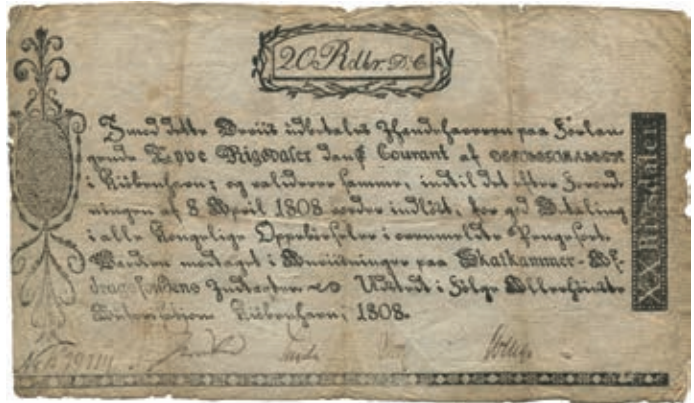 20 Rdlr. D. C.
Imod dette Beviis udbetales Ihændehaveren paa Forlan-
gende Tyve Rigsdaler dansk Courant af
i Kiöbenhavn; og validerer samme, indtil det efter Forord-
ningen af 8 April 1808 vorder indlöst, for god Betaling
i alle Kongelige Oppebörseler i ovenmeldte Pengesort.
Værdien modtaget i Anviisninger paa Skatkammer-Af-
dragsfondens Indtægter Udstedt i Fölge Allerhöieste
Autorisation. Kiöbenhavn, 1808.
XX Rigsdaler
No